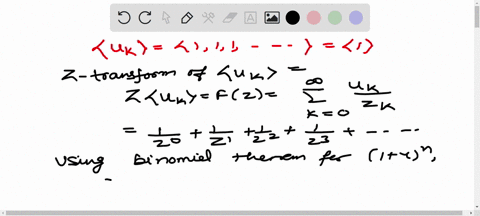 <u_K> = <1, 1, 1, - - - - > = <1>
Z-transform of <u_K> =
Z<u_K> = F(z) = ∞ Σ K=0 u_K / z_K
= 1/z^0 + 1/z^1 + 1/z^2 + 1/z^3 + - - - -
Using Binomial theorem for (1+x)^n,